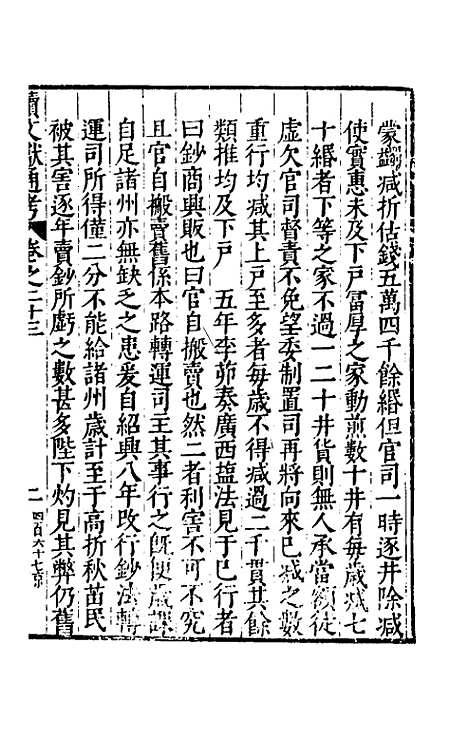 蒙蠲減折估錢五萬四千餘緡但官司一時逐井除減
使實惠未及下戶富厚之家動煎數十井有每歲減七
十緡者下等之家不過一二十井貨則無人承當額徒
虛欠官司督責不免望委制置司再將向來已減之數
重行均減其上戶至多者每歲不得減過二千貫其餘
類推均及下戶　五年李茆奏廣西塩法見于已行者
曰鈔商興販也曰官自搬賣也然二者利害不可不究
且官自搬賣舊係本路轉運司主其事行之既便歲課
自足諸州亦無缺乏之患爰自紹興八年改行鈔法轉
運司所得僅二分不能給諸州歲計至于高折秋苗民
被其害逐年賣鈔所虧之數甚多陛下灼見其弊仍舊
續文獻通考　卷之二十三　二　四百六十七